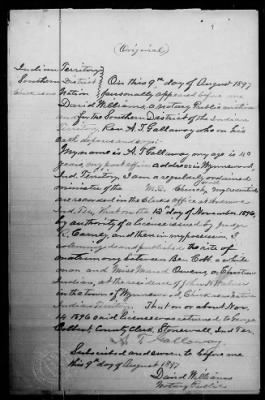 (Original)
Indian Territory
Southern District On this 9th day of August 1897
Nation personally appeared before me
David Williams, a notary Public within
and for the Southern District of the Indian
Territory, Rev. A. T. Galloway who on his
oath deposes and says:
My name is A. T. Galloway my age is 40
years, my post office address is Wynnewood,
Ind. Territory. I am a regularly ordained
minister of the M.E. Church, my credentials
are recorded in the Clerks office at Ardmore
Ind. Ter. That on the 12th day of November 1896,
by authority of a license issued by Judge
Carney, and then in my possession I
solemnized and published the rite of
matrimony between Ben. Cobb a white
man and Miss Maud Owens, a Choctaw
Indian, at the residence of John
in the town of Wynnewood, Chickasaw Nation
Indian Territory. That on or about Nov.
14 1896 said license was returned to George
Colbert, County Clerk, Stonewall, Ind Ter.
A. T. Galloway.
Subscribed and sworn to before me
this 9th day of August 1897
David Williams
Notary Public